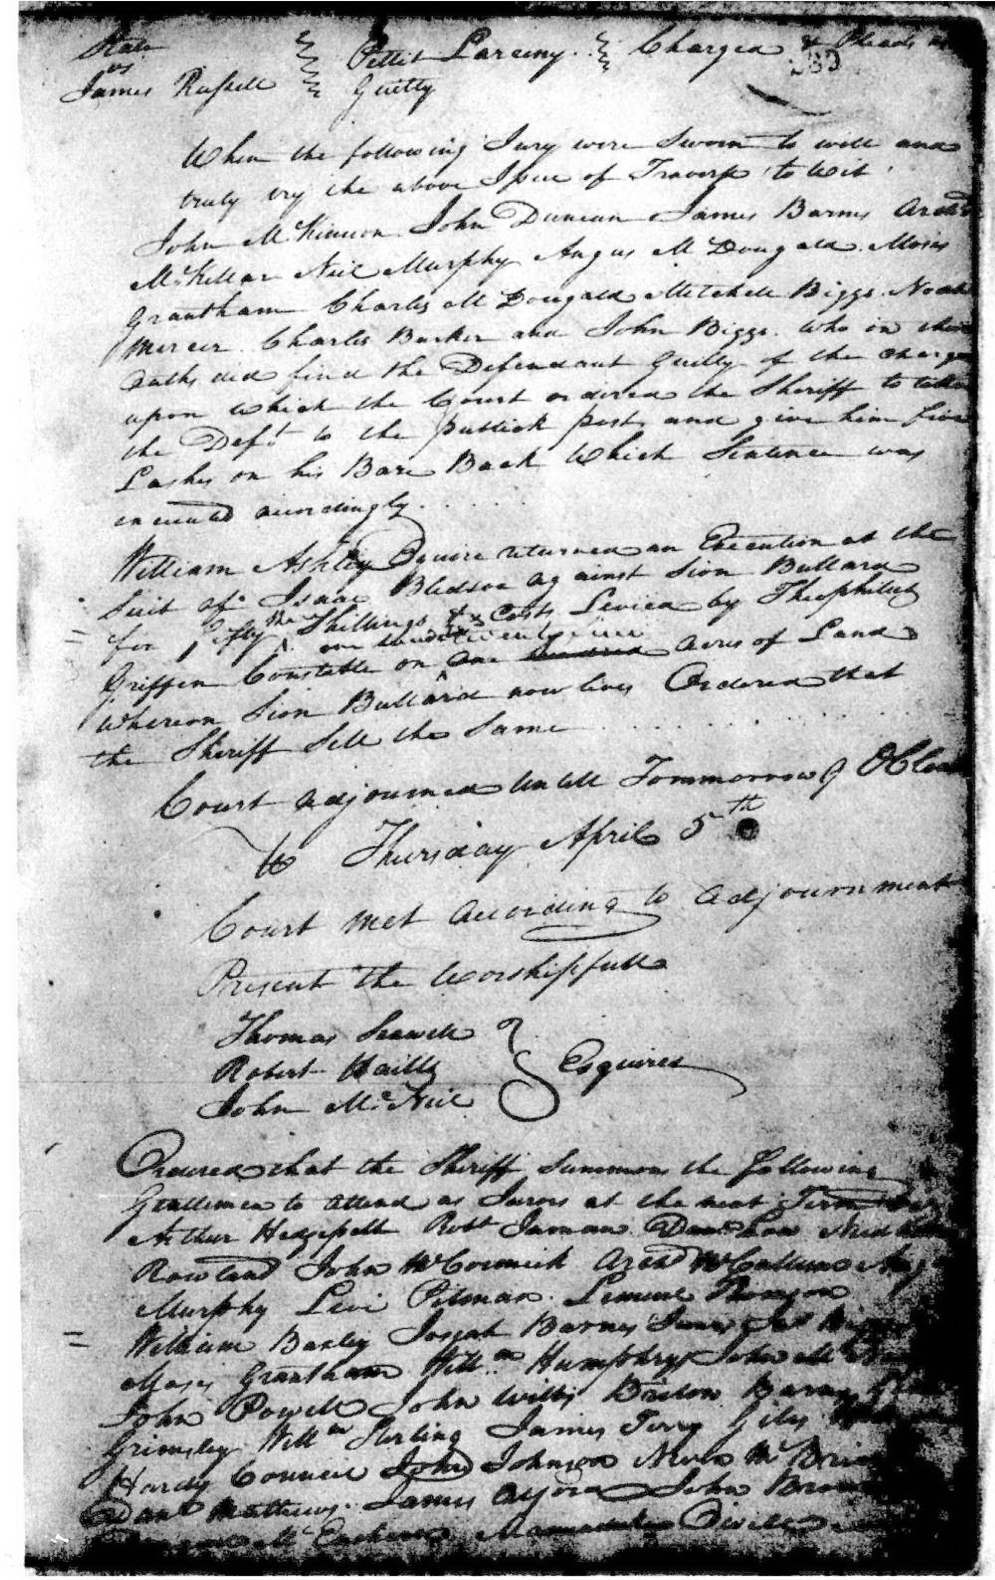 State
vs
James Russell
Pettit Larceny. Charged & Pleads
Guilty
When the following Jury were Sworn to well and
truly try the above Issue of Traverse, to wit,
John McKinnon John Duncan James Barns Archd
McKellar Neil Murphy Angus McDougald Moses
Grantham Charles McDougald Mitchell Biggs Noah
Mercer Charles Barker and John Biggs. Who on their
Oaths did find the Defendant Guilty of the charge
upon which the Court ordered the Sheriff to take
the Deft to the publick post, and give him five
Lashes on his Bare Back Which Sentence was
executed accordingly.
William Ashley Esquire returned an Execution at the
Suit of Isaac Bledsoe against Sion Bullard
for fifty Shillings & Costs Levied by Theophilus
one hundred twenty five
Griffen Constable on one hundred acres of Land
Whereon Sion Bullard now lives Ordered that
the Sheriff Sell the Same
Court adjourned Untill Tommorrow 9 OClock
Thursday April 5th
Court met according to adjournment
Present the Worshipfull
Thomas Sewell
Robert Hails
John McNeil
Esquires
Ordered that the Sheriff Summons the following
Gentlemen to attend as Jurors at the next Term
Arthur Hedgepeth Robt Jarman
Rowland John McCormick Archd McCallum
Murphy Levi Pitman. Lemuel
William Baxley Josiah Barnes James
Moses Grantham Willm Humphrys John
John Powell John Willis Briton
Grimsley Willm Sterling James Terry Giles
Hardy Council John Johnson Niven
Danl Mathews. James Alford John